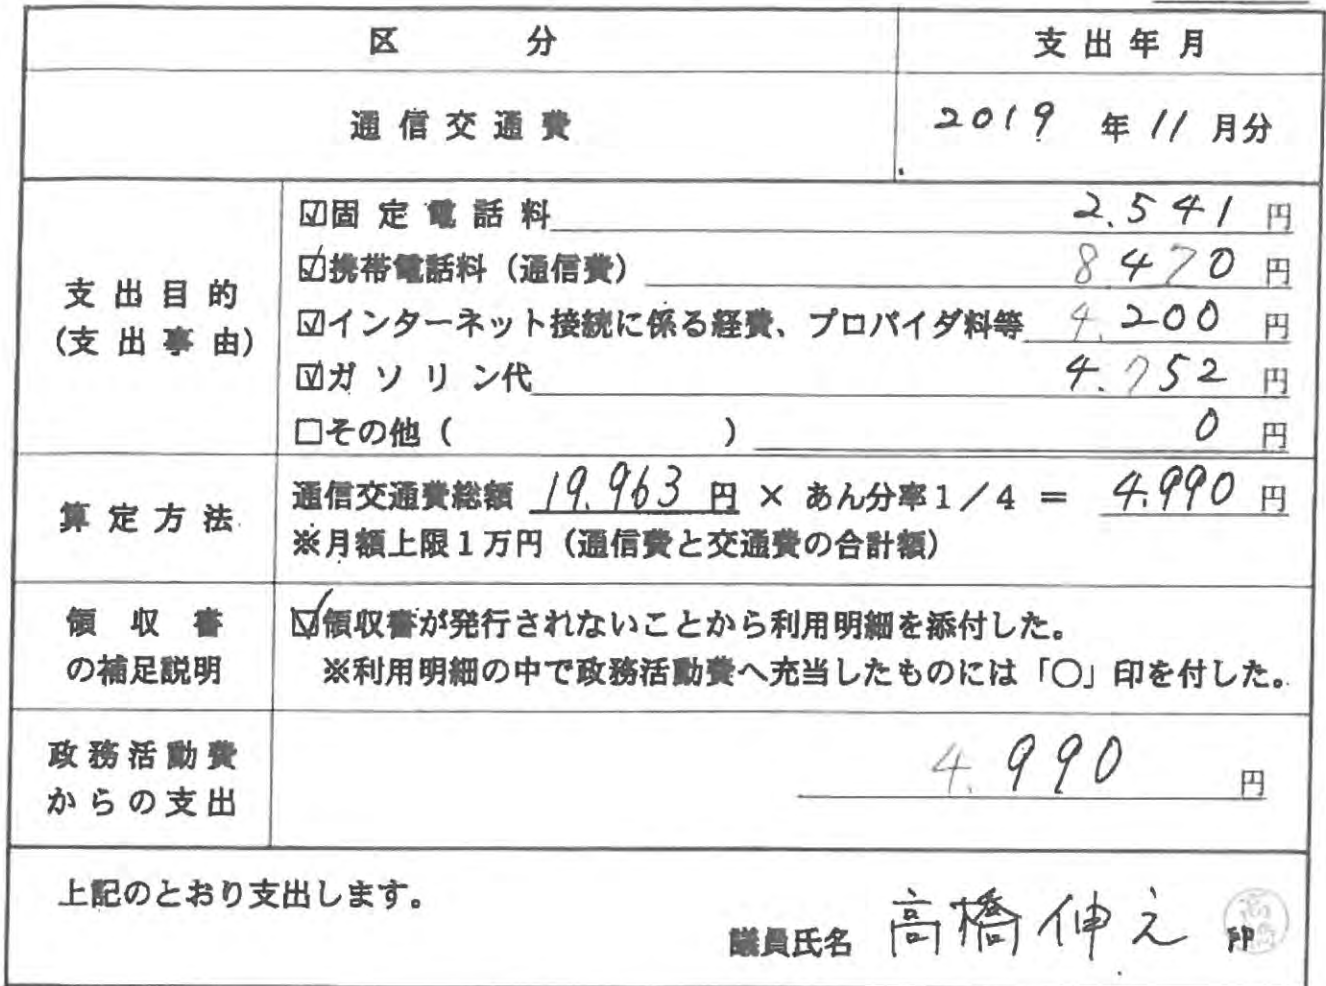 区 分 支出年月
通信交通費 2019 年 11 月分
支出目的
(支出事由)
☑固定電話料 2.541 円
☑携帯電話料（通信費） 8470 円
☑インターネット接続に係る経費、プロバイダ料等 4.200 円
☑ガソリン代 4.752 円
□その他（ ） 0 円
算定方法
通信交通費総額 19.963 円 × あん分率1／4 ＝ 4.990 円
※月額上限1万円（通信費と交通費の合計額）
領収書
の補足説明
☑領収書が発行されないことから利用明細を添付した。
※利用明細の中で政務活動費へ充当したものには「○」印を付した。
政務活動費
からの支出
4.990 円
上記のとおり支出します。
議員氏名 高橋伸之 印